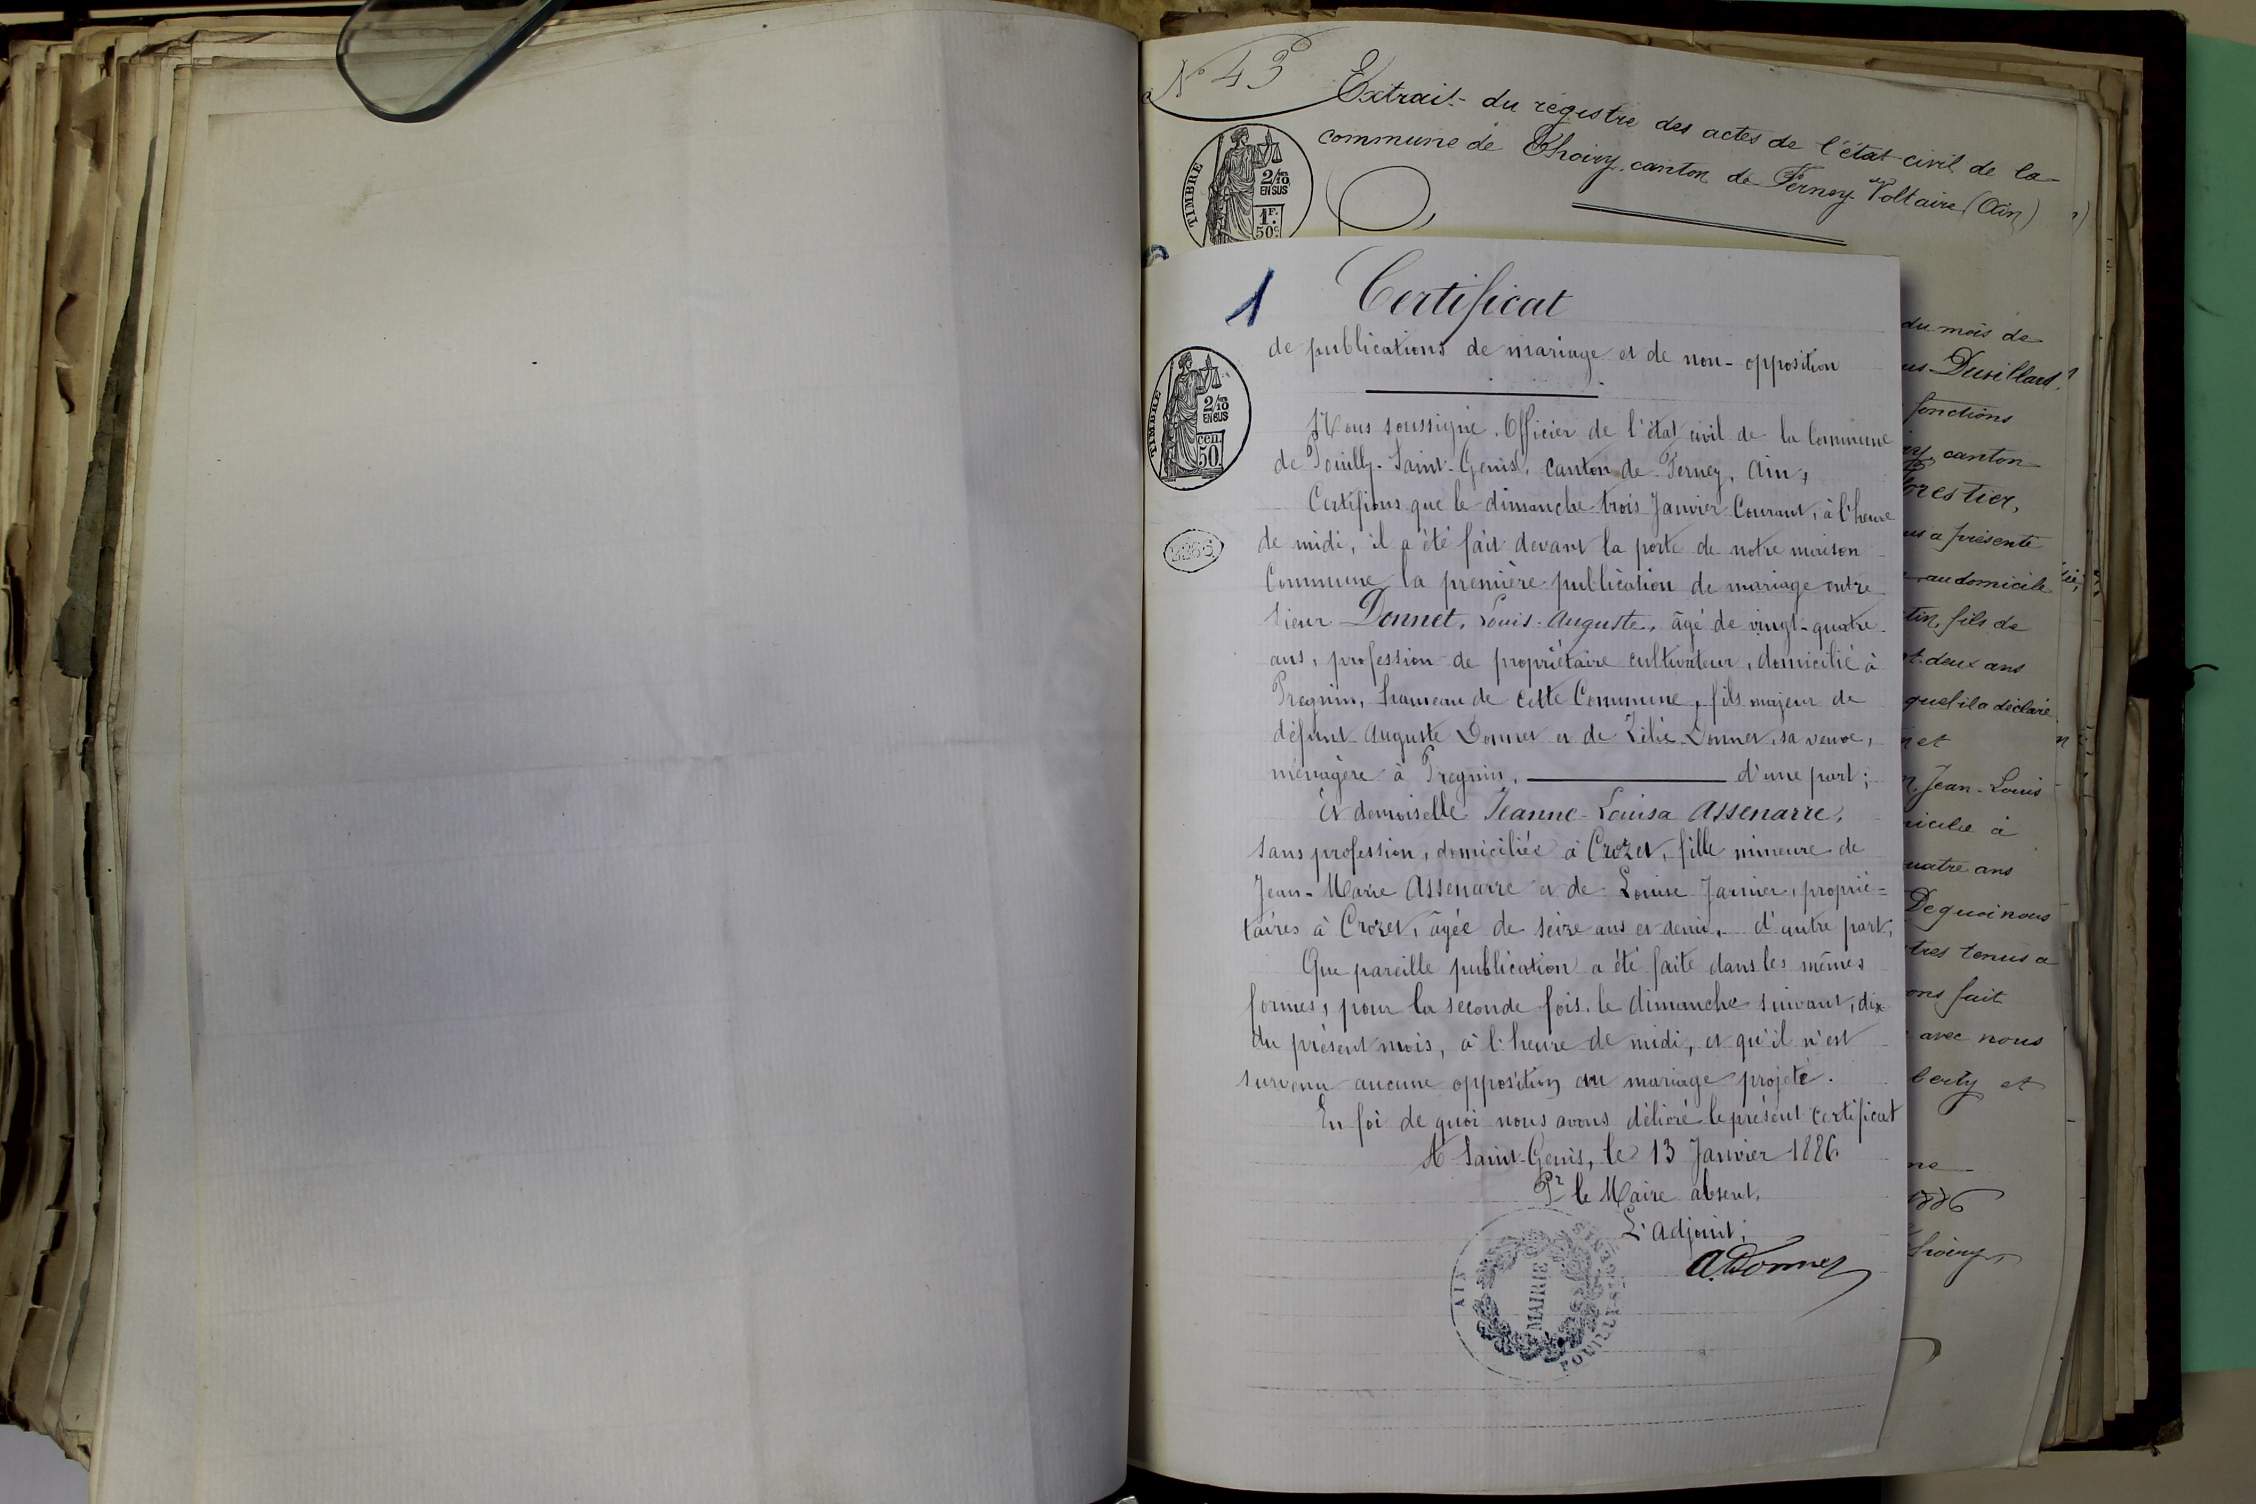 N° 43
Extrait du régistre des actes de l'état civil de la
commune de Thoiry, canton de Ferney-Voltaire (Ain)
TIMBRE
2/10
EN SUS
1F.
50c
1
Certificat
de publications de mariage et de non-opposition
TIMBRE
2/10
EN SUS
cen.
50.
Nous soussigné, Officier de l'état civil de la Commune
de Pouilly-Saint-Genis, canton de Ferney, Ain,
Certifions que le dimanche trois Janvier Courant, à l'heure
de midi, il a été fait devant la porte de notre maison
Commune la première publication de mariage entre
sieur Donnet, Louis-Auguste, âgé de vingt-quatre
ans, profession de propriétaire cultivateur, domicilié à
Pregnin, hameau de cette Commune, fils majeur de
défunt Auguste Donnet et de Zélie Donnet, sa veuve,
ménagère à Pregnin, d'une part;
Et demoiselle Jeanne-Louisa Assenarre,
sans profession, domiciliée à Crozet, fille mineure de
Jean-Marie Assenarre et de Louise Janier, proprié=
taires à Crozet, âgée de seize ans et demi, d'autre part,
Que pareille publication a été faite dans les mêmes
formes, pour la seconde fois, le dimanche suivant, dix
du présent mois, à l'heure de midi, et qu'il n'est
survenu aucune opposition au mariage projeté.
En foi de quoi nous avons délivré le présent certificat
A Saint-Genis, le 13 Janvier 1886
Pr le Maire absent,
L'adjoint,
A. Donnet
AIN
MAIRIE
POUILLY-ST-GENIS
du mois de
Duvillard,
fonctions
canton
forestier,
a présenté
au domicile
tin, fils de
t-deux ans
quel il a déclaré
et
Jean-Louis
micilié à
quatre ans
De quoi nous
tres tenus a
ons fait
avec nous
berty et
1886
Thoiry,